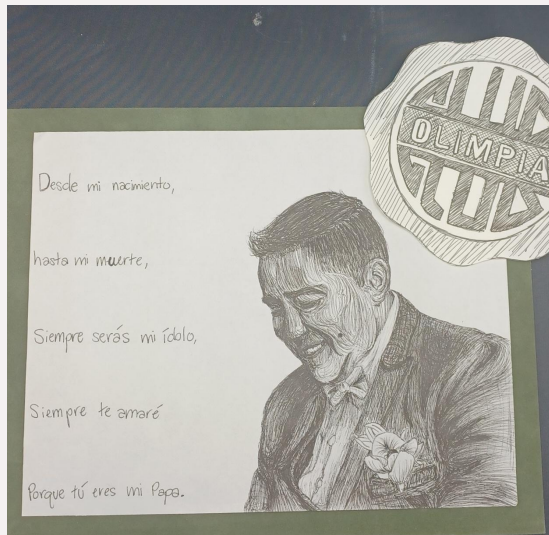 Desde mi nacimiento,
hasta mi muerte,
Siempre serás mi ídolo,
Siempre te amaré
Porque tú eres mi Papa.
CLUB
OLIMPIA